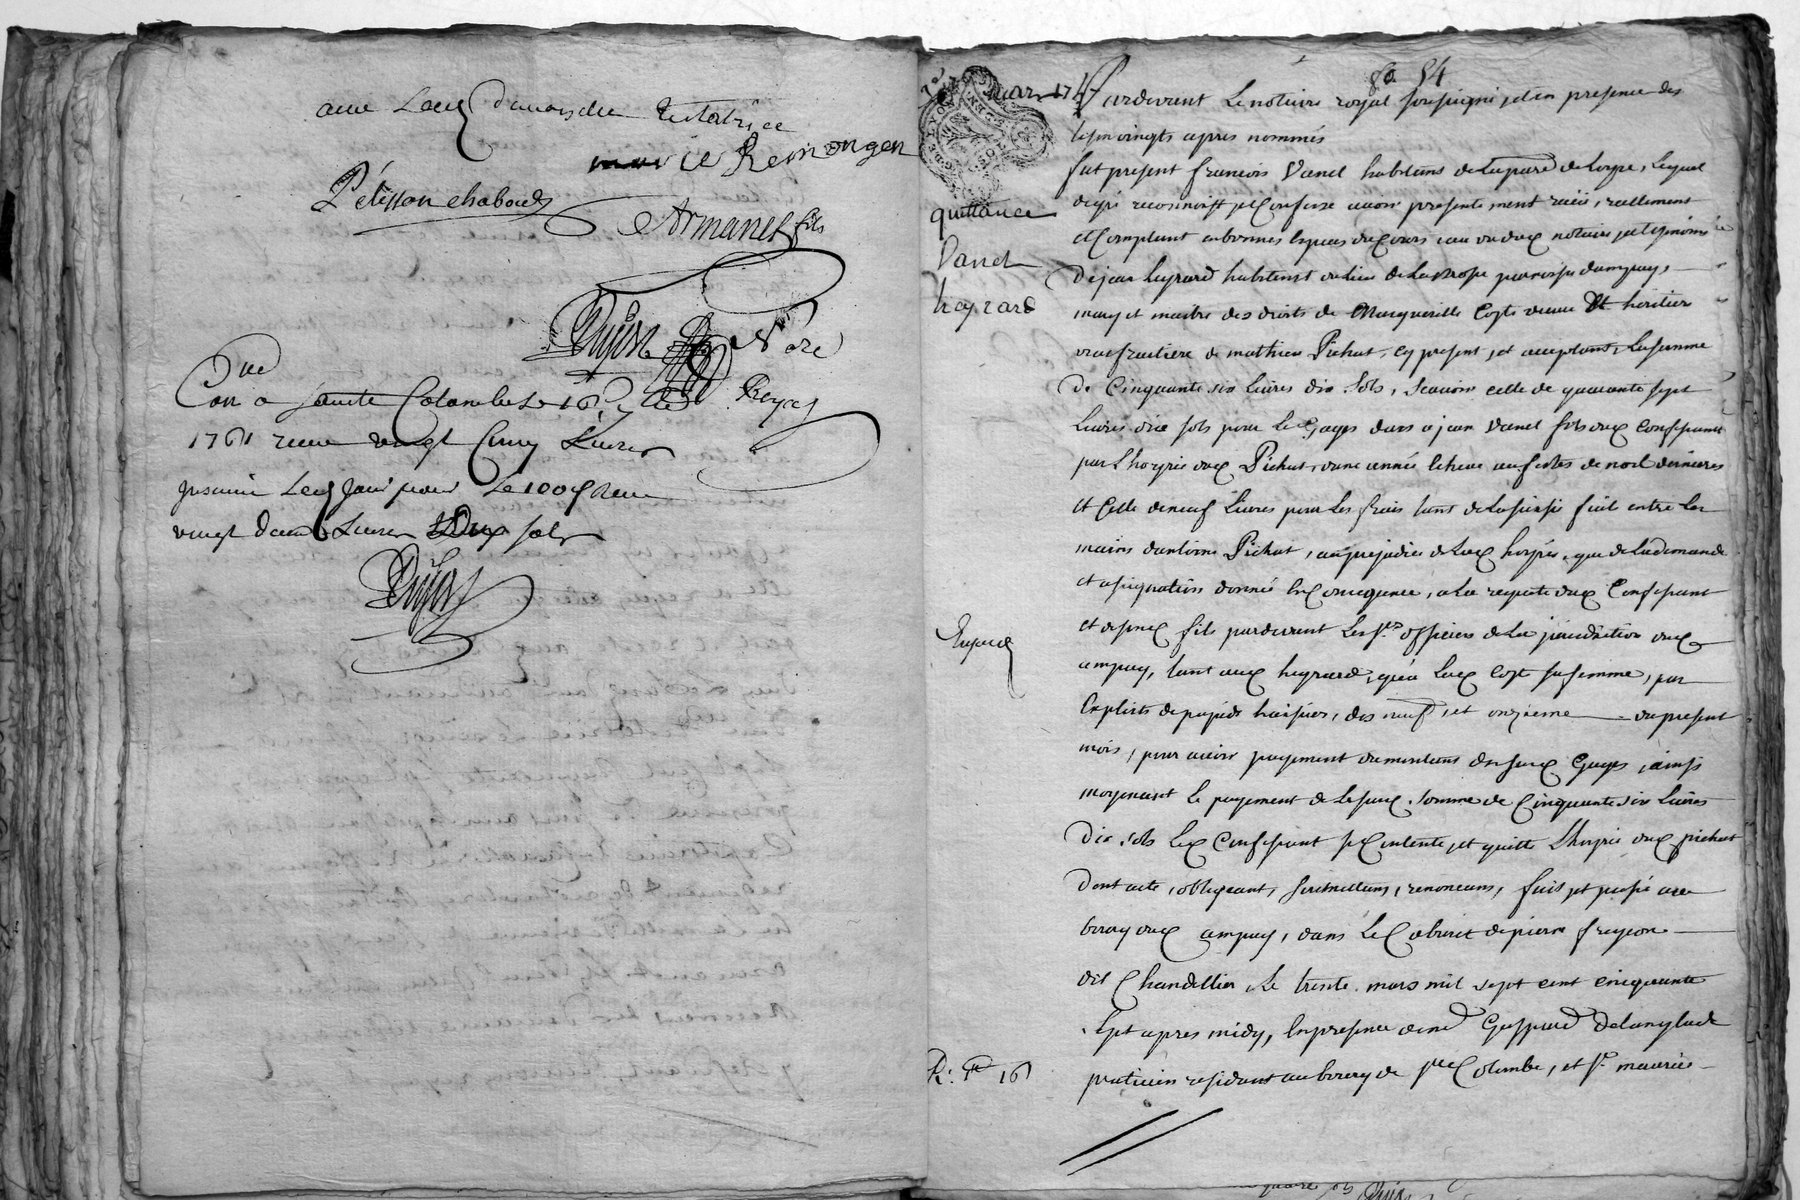 avec Lad. demoiselle testatrice
marie Remongen
Pélisson chabouds
Armanet fils
Dujon No.re Royal
Con.llé a sainte Colombe le 16
1761 receu vingt Cinq Livres
jusqu'à Led. jour pour le 100e denier
vingt deux Livres dix sols
Dujon
80 54
30 mars 1757
Pardevant Le notaire royal soussigné, et en presence des
temoingts apres nommés
fut present francois Vanel habitans de
degré reconnoist et Confesse avoir presentement reçû, reellement
et Comptant en bonnes especes du Cours, au vu dud. notaire et temoins
de jean heyrard habitant au lieu de paroisse dampuy,
mary et maitre des droits de Margueritte Coste veuve et heritiere
usufruitiere de mathieu Pichat, cy present, et acceptant, La somme
de Cinquante six Livres dix sols, scavoir celle de quarante sept
Livres dix sols pour Les Gages dues a jean Vanel fils dud. Confessant
par L'hoyrie dud. Pichat, d'une année echue aux festes de noel dernieres
et Celle de neuf Livres pour Les frais tant de La saisie faite entre Les
mains d'antoine Pichat, au prejudice de Lad. hoyrie, que de La demande
et assignation donnée En Consequence, a La requete dud. Confessant
et de sond. fils pardevant Les s.rs officiers de La jurisdiction dud.
ampuy, tant aud. heyrard, qu'a Lad. Cost sa femme, par
Exploits de huissier, des neuf, et onzieme du present
mois, pour avoir payement du montant desd. Gages, ainsi
moyenant le payement de La susd. somme de Cinquante six Livres
Dix sols Led. Confessant se Contente, et quitte L'hoyrie dud. pichat
Dont acte, obligeant, soumettant, renonceant, fait et passé au
bourg dud. ampuy, dans Le Cabaret de pierre freyson
dit Chandellier, Le trente mars mil sept cent cinquante
sept apres midy, En presence de me. Gaspard Delanglade
praticien residant au bourg de s.te Colombe, et s.r maurice
quittance
Vanel
heyrard
Expedié